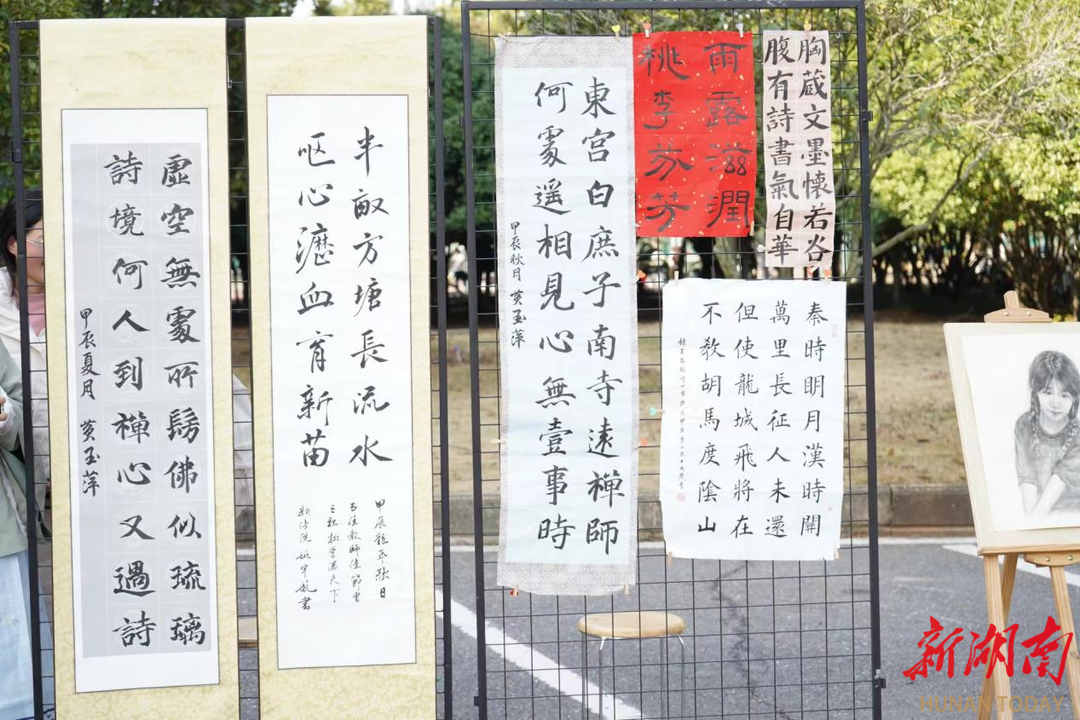 虛空無處所髣佛似琉璃
詩境何人到禪心又過詩
甲辰夏月 黃玉萍
半畝方塘長流水
呕心瀝血育新苗
甲辰龍年秋日
之祝桃李满天下
東宮白庶子南寺遠禪師
何處遥相見心無壹事時
甲辰秋月 黃玉萍
雨露滋潤
桃李芬芳
胸蔵文墨懷若谷
腹有詩書氣自華
秦時明月漢時關
萬里長征人未還
但使龍城飛將在
不敎胡馬度陰山
新湖南
HUNAN TODAY